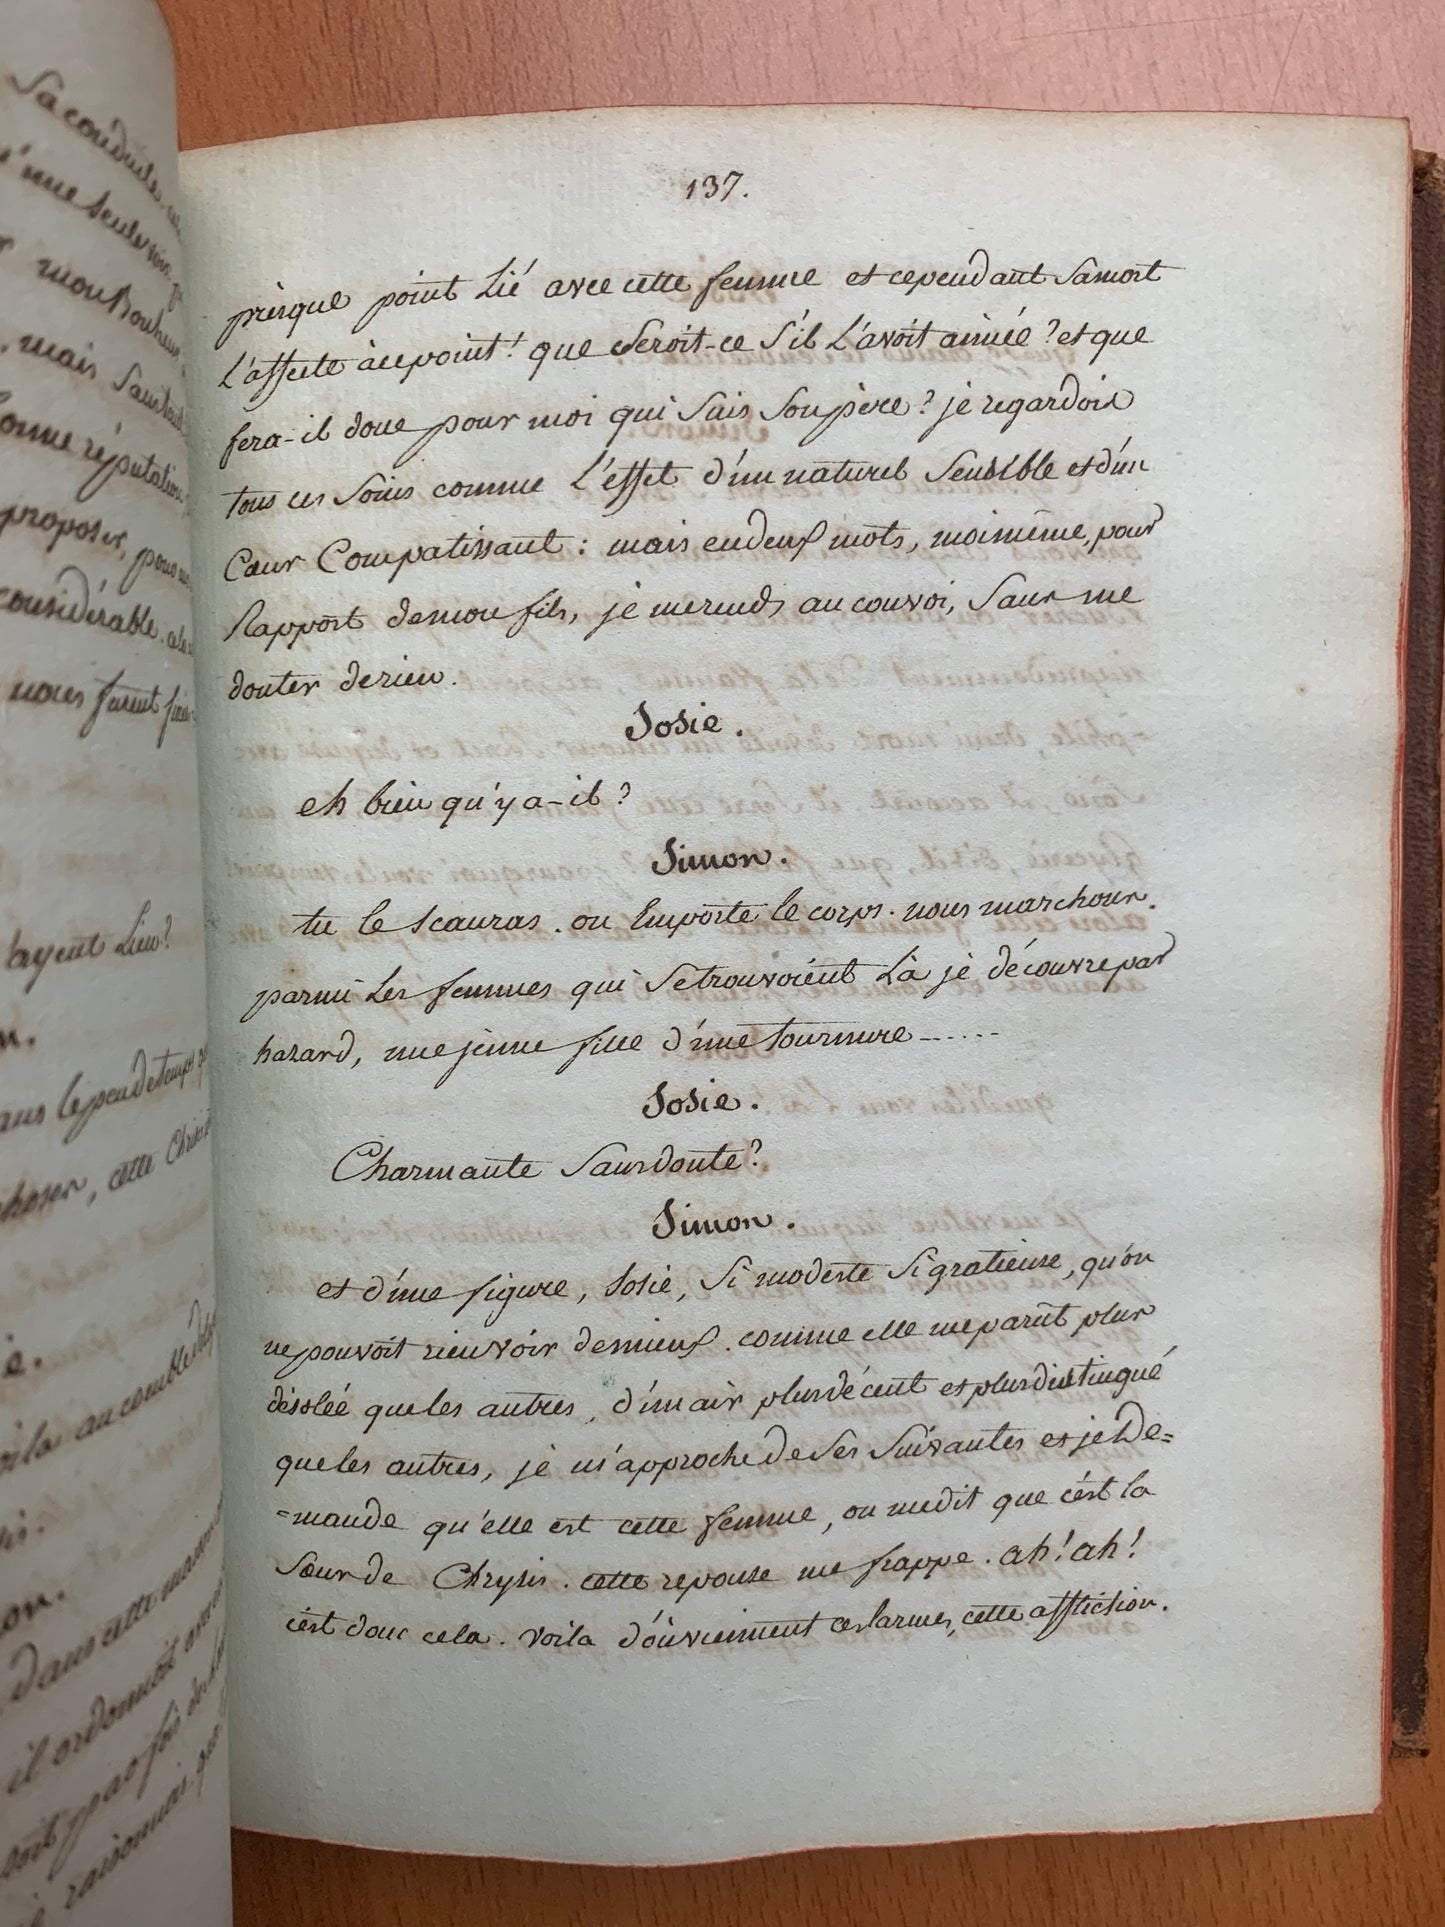 137.
presque point Lié avec cette femme et cependant Sa mort
L'affecte à ce point! que Seroit-ce S'il L'avoit aimée? et que
fera-il donc pour moi qui Suis Son père? je regardois
tous ces Soins comme L'effet d'un naturel Sensible et d'un
Cœur Compatissant: mais en deux mots, moi même, pour
Rapport de mon fils, je me rends au convoi, Sans me
douter de rien.
Sosie.
eh bien qu'y a-il?
Simon.
tu le Scauras. on Emporte le corps. nous marchons.
parmi Les femmes qui Se trouvoient Là je découvre par
hazard, une jeune fille d'une tournure ......
Sosie.
Charmante Sans doute?
Simon.
et d'une figure, Sosie, Si modeste Si gratieuse, qu'on
ne pouvoit rien voir de mieux. comme elle me parût plus
désolée que les autres, d'un air plus décent et plus distingué
que les autres, je m'approche de Ses Suivantes et je De=
=mande qu'elle est cette femme, on me dit que c'est la
Sœur de Chrysis. cette reponse me frappe. ah! ah!
c'est donc cela. voila d'où viennent ces larmes, cette affliction.
Sa conduite
une Seule fois
mon Bonheur
mais
réputation
proposer, pour
considérable.
nous furent
ayent Lieu?
n.
le peu de temps
choses, cette
e.
voila au comble
on.
dans cette maison
il ordonnoit
pas fois
raisonnois, que